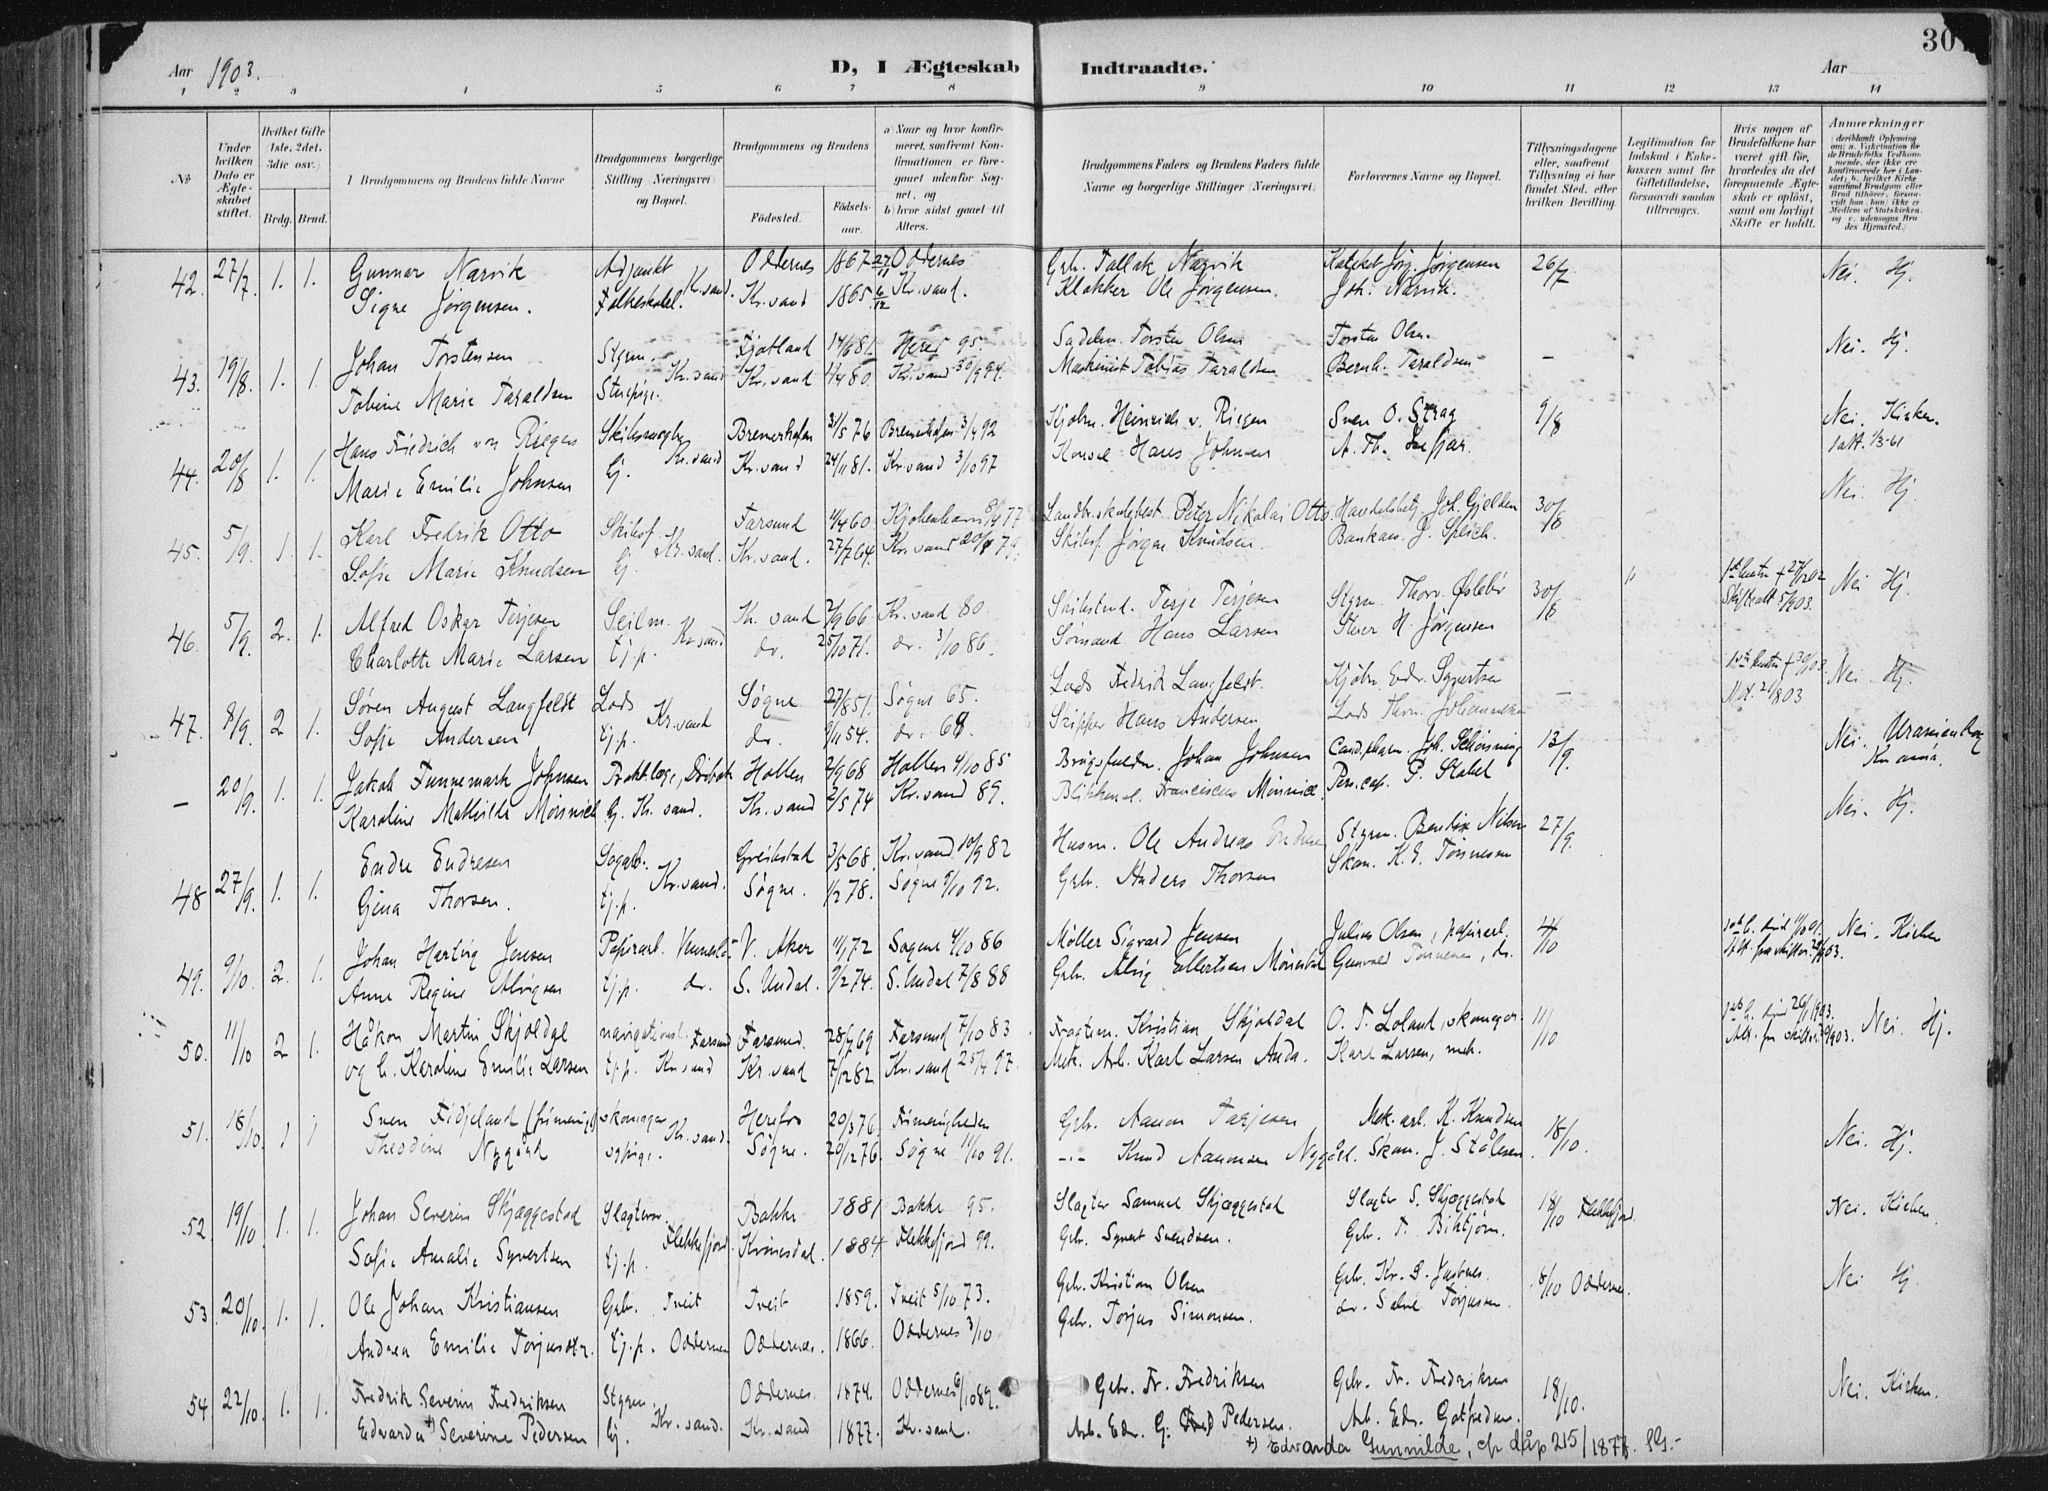 Aar 1903.
D, I Ægteskab Indtraadte.
Aar
301
1 2 3 4 5 6 7 8 9 10 11 12 13 14
No.
Under hvilken Dato er Ægteskabet stiftet.
Hvilket Gifte (1ste, 2det, 3die osv.)
Brdg. Brud.
1 Brudgommens og Brudens fulde Navne
Brudgommens borgerlige Stilling (Næringsvei) og Bopæl.
Brudgommens og Brudens
Fødested. Fødselsaar.
a) Naar og hvor konfirmeret, saafremt Konfirmationen er foregaaet udenfor Sognet, og
b) hvor sidst gaaet til Alters.
Brudgommens Faders og Brudens Faders fulde Navne og borgerlige Stillinger (Næringsvei.)
Forlovernes Navne og Bopæl.
Tillysningsdagene eller, saafremt Tillysning ei har fundet Sted, efter hvilken Bevilling.
Legitimation for Indskud i Enkekassen samt for Giftetilladelse, forsaavidt saadan tiltrænges.
Hvis nogen af Brudefolkene har været gift før, hvorledes da det foregaaende Ægteskab er opløst, samt om lovligt Skifte er holdt.
Anmærkninger
42. 27/7. 1. 1. Gunnar Narvik Adjunkt Kr.sand. Oddernes 1867 27/11 Oddernes Grb. Tallak Narvik Kateket Jørg. Jørgensen 26/7 Nei. Hj.
Signe Jørgensen. Folkeskolel. Kr.sand 1865 6/12 Kr.sand. Klokker Ole Jørgensen. Joh. Narvik.
43. 19/8. 1. 1. Johan Torstensen Styrm. Kr.sand Fjotland 14/6 81. Heref 95. Sadelm. Torsten Olsen Torsten Olsn. – Nei. Hj.
Tobine Marie Taraldsen Stuepige. Kr.sand 1/4 80. Kr.sand 30/9 94. Maskinist Tobias Taraldsen Bernh. Taraldsen
44. 20/8 1. 1. Hans Friedrich von Riegen Skibsmægler Kr.sand Bremerhafen 31/5 76 Bremerhafen 3/4 92 Kjøbm. Heinrich v. Riegen Sven O. Strag 9/8 Nei. Kirken.
Marie Emilie Johnsen Ej. Kr.sand 24/11 81. Kr.sand 3/10 97 Konsul Hans Johnsen A. Th.
45. 5/9. 1. 1. Karl Fredrik Otto Skibsf. Kr.sand. Farsund 4/4 60 Kjøbenhavn 8/4 77 Landbr.skolebest. Peter Nikolai Otto. Handelsbetj. Joh. Gjelden 30/8 Nei Hj
Sofie Marie Knudsen Ej. Kr.sand. 27/7 64. Kr.sand 20/4 79. Skibsf. Jørgen Knudsen. Bankass. J. Spleich.
46. 5/9. 2. 1. Alfred Oskar Terjesen Seilm. Kr.sand Kr.sand 2/9 66 Kr.sand 80. Skibstmd. Terje Terjesen Styrm. Thorv. Øslebø 30/8 " 1st hustru † 27/12 02 Skifteatt 5/9 03. Nei Hj
Charlotte Marie Larsen Ej.p. do. 25/10 71. do. 3/10 86. Sømand Hans Larsen Stuer H. Jørgensen
47. 8/9. 2 1. Søren August Langfeldt Lods Kr.sand Søgne 27/8 51. Søgne 65. Lods Fredrik Langfeldt. Kjøbm. Edv. Syvertsen – 1ste hustru † Not. 21/8 03 Nei. Hj.
Sofie Andersen Ej.p. do. 9/11 54. do. 68 Skipper Hans Andersen Lods Thom. Johannesen
– 20/9. 1. 1. Jakob Funnemark Johnsen Prakt.læge, Drøbak Hollen 2/9 68 Hollen 4/10 85 Brugsfuldm. Johan Johnsen Cand.pharm. Joh. Schønning 13/9. Nei. Uranienborg Kr.ania.
Karoline Mathilde Mørnich Ej. Kr.sand. Kr.sand 2/5 74 Kr.sand 89. Blikkensl. Franciscus Mørnich. Pens.cap. P. Stabel Nei. Hj.
48 27/9. 1. 1. Endre Endresen Sogarb. Kr.sand. Greipstad 3/5 68. Kr.sand. 10/9 82 Husm. Ole Andreas Endresen Styrm. Bendix Nilsen 27/9.
Gina Thorsen. Ej.p. Søgne. 1/2 78. Søgne 9/10 92. Grb. Anders Thorsen Skom. K. E. Tønnesen
49. 9/10. 2. 1. Johan Hartvig Jensen Papirarb. Vennesla V. Aker 11/1 72 Sogne 4/10 86 Møller Sigvard Jensen Julius Olsen, papirarb. 4/10 1ste h. død Att. fra skifter. 03. Nei. Kirken
Anne Regine Alvigsen Ej.p. do. S. Undal. 9/2 74. S. Undal 7/8 88 Grb. Alvig Ellertsen Mønnestad Gunvald Tønnesen, do.
50. 11/10 2 1. Håkon Martin Skjoldal navigationsl. Farsund Farsund. 28/7 69 Farsund 7/10 83 Fragtem. Kristian Skjoldal O. T. Loland, skomager 11/10 1ste h. død 26/1 1903. Att. fra skifter. 03. Nei. Hj.
og h. Karoline Emilie Larsen Ej.p. Kr.sand Kr.sand 7/12 82 Kr.sand 25/4 97. Mek. Arb. Karl Larsen Anda. Karl Larsen, mek.
51. 18/10. 1 1 Sven Fidjeland (frimenigh) skomager Kr.sand. Herefos 20/3 76 Frimenigheden Grb. Aanon Tarjesen Mek. arb. K. Knudsen 18/10. Nei. Hj.
Theodine Nygård sypige. Søgne. 20/12 76. Søgne 11/10 91. –"– Knud Aanonsen Nygård. Skom. J. Stålesen.
52. 19/10. 1. 1. Johan Severin Skjæggestad Slagtersv. Flekkefjord. Bakke 1881 Bakke 95. Slagter Samuel Skjæggestad Slagter S. Skjæggestad 18/10 Flekkefjord. Nei. Kirken.
Sofie Amalie Syvertsen Ej.p. Kvinesdal. 1884 Flekkefjord 99. Grb. Syvert Svendsen. Grb. T. Birkjørn.
53. 20/10. 1. 1. Ole Johan Kristiansen Grb. Tveit Tveit 1859. Tveit 5/10 73. Grb. Kristian Olsen Grb. Kr. B. Justnes. 18/10 Oddernes. Nei Hj.
Andrea Emilie Torjusdtr. Ej.p. Oddernes Oddernes. 1866. Oddernes 3/10 Grb. Torjus Simonsen. do. Salve Torjussen.
54 22/10. 1. 1. Fredrik Severin Fredriksen Styrm. Kr.sand. Oddernes 1874. Oddernes 6/10 89. Grb. Fr. Fredriksen Grb. Fr. Fredriksen 18/10. Nei. Kirken.
Edvarda +) Severine Pedersen Ej. Kr.sand 1877. Kr.sand. Arb. Edv. G. Pedersen. Arb. Edv. Gotfredsen.
+) Edvarda Gunnilde, cfr dåp 215/1877.